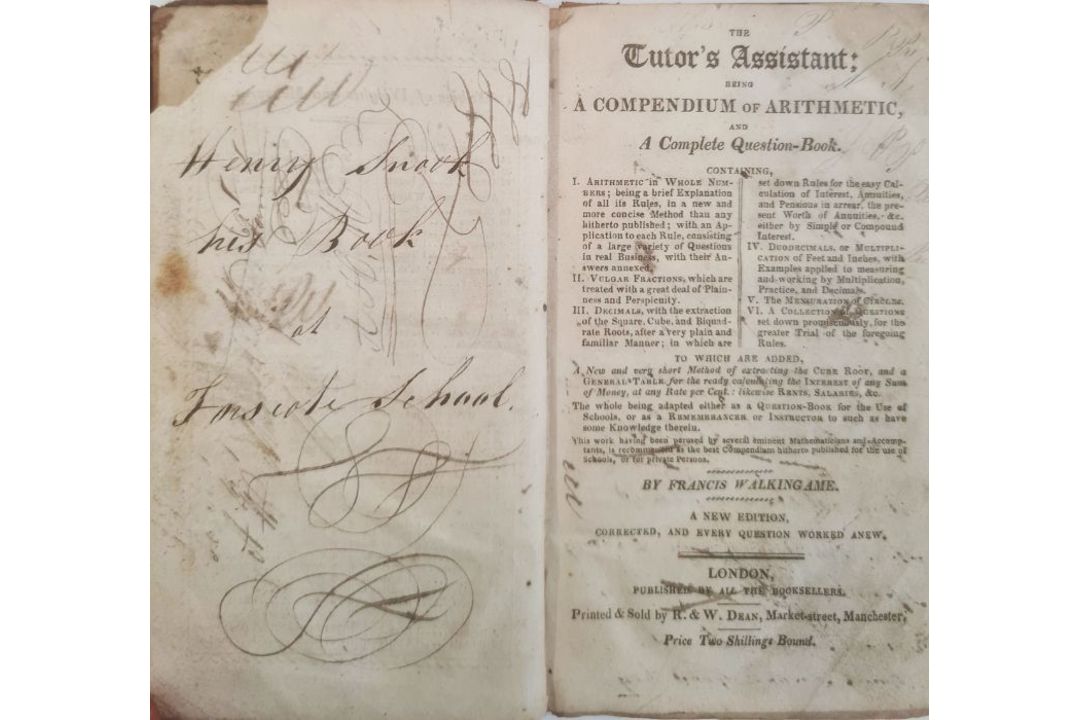 Henry Snook
his Book
at
School.
THE
Tutor's Assistant:
BEING
A COMPENDIUM OF ARITHMETIC,
AND
A Complete Question-Book.
CONTAINING,
I. ARITHMETIC in WHOLE NUM-
BERS; being a brief Explanation
of all its Rules, in a new and
more concise Method than any
hitherto published; with an Ap-
plication to each Rule, consisting
of a large variety of Questions
in real Business, with their An-
swers annexed.
II. VULGAR FRACTIONS, which are
treated with a great deal of Plain-
ness and Perspicuity.
III. DECIMALS, with the extraction
of the Square, Cube, and Biquad-
rate Roots, after a very plain and
familiar Manner; in which are
set down Rules for the easy Cal-
culation of Interest, Annuities,
and Pensions in arrear, the pre-
sent Worth of Annuities, &c.
either by Simple or Compound
Interest.
IV. DUODECIMALS, or MULTIPLI-
CATION of Feet and Inches, with
Examples applied to measuring
and working by Multiplication,
Practice, and Decimals.
V. The MENSURATION of CIRCLES.
VI. A COLLECTION of QUESTIONS
set down promiscuously, for the
greater Trial of the foregoing
Rules.
TO WHICH ARE ADDED,
A New and very short Method of extracting the CUBE ROOT, and a
GENERAL TABLE for the ready calculating the INTEREST of any Sum
of Money, at any Rate per Cent.: likewise RENTS, SALARIES, &c.
The whole being adapted either as a QUESTION-BOOK for the Use of
Schools, or as a REMEMBRANCER or INSTRUCTOR to such as have
some Knowledge therein.
This work having been perused by several eminent Mathematicians and Accomp-
tants, is recommended as the best Compendium hitherto published for the use of
Schools, or for private Persons.
BY FRANCIS WALKINGAME.
A NEW EDITION,
CORRECTED, AND EVERY QUESTION WORKED ANEW.
LONDON,
PUBLISHED BY ALL THE BOOKSELLERS.
Printed & Sold by R. & W. DEAN, Market-street, Manchester,
Price Two Shillings Bound.